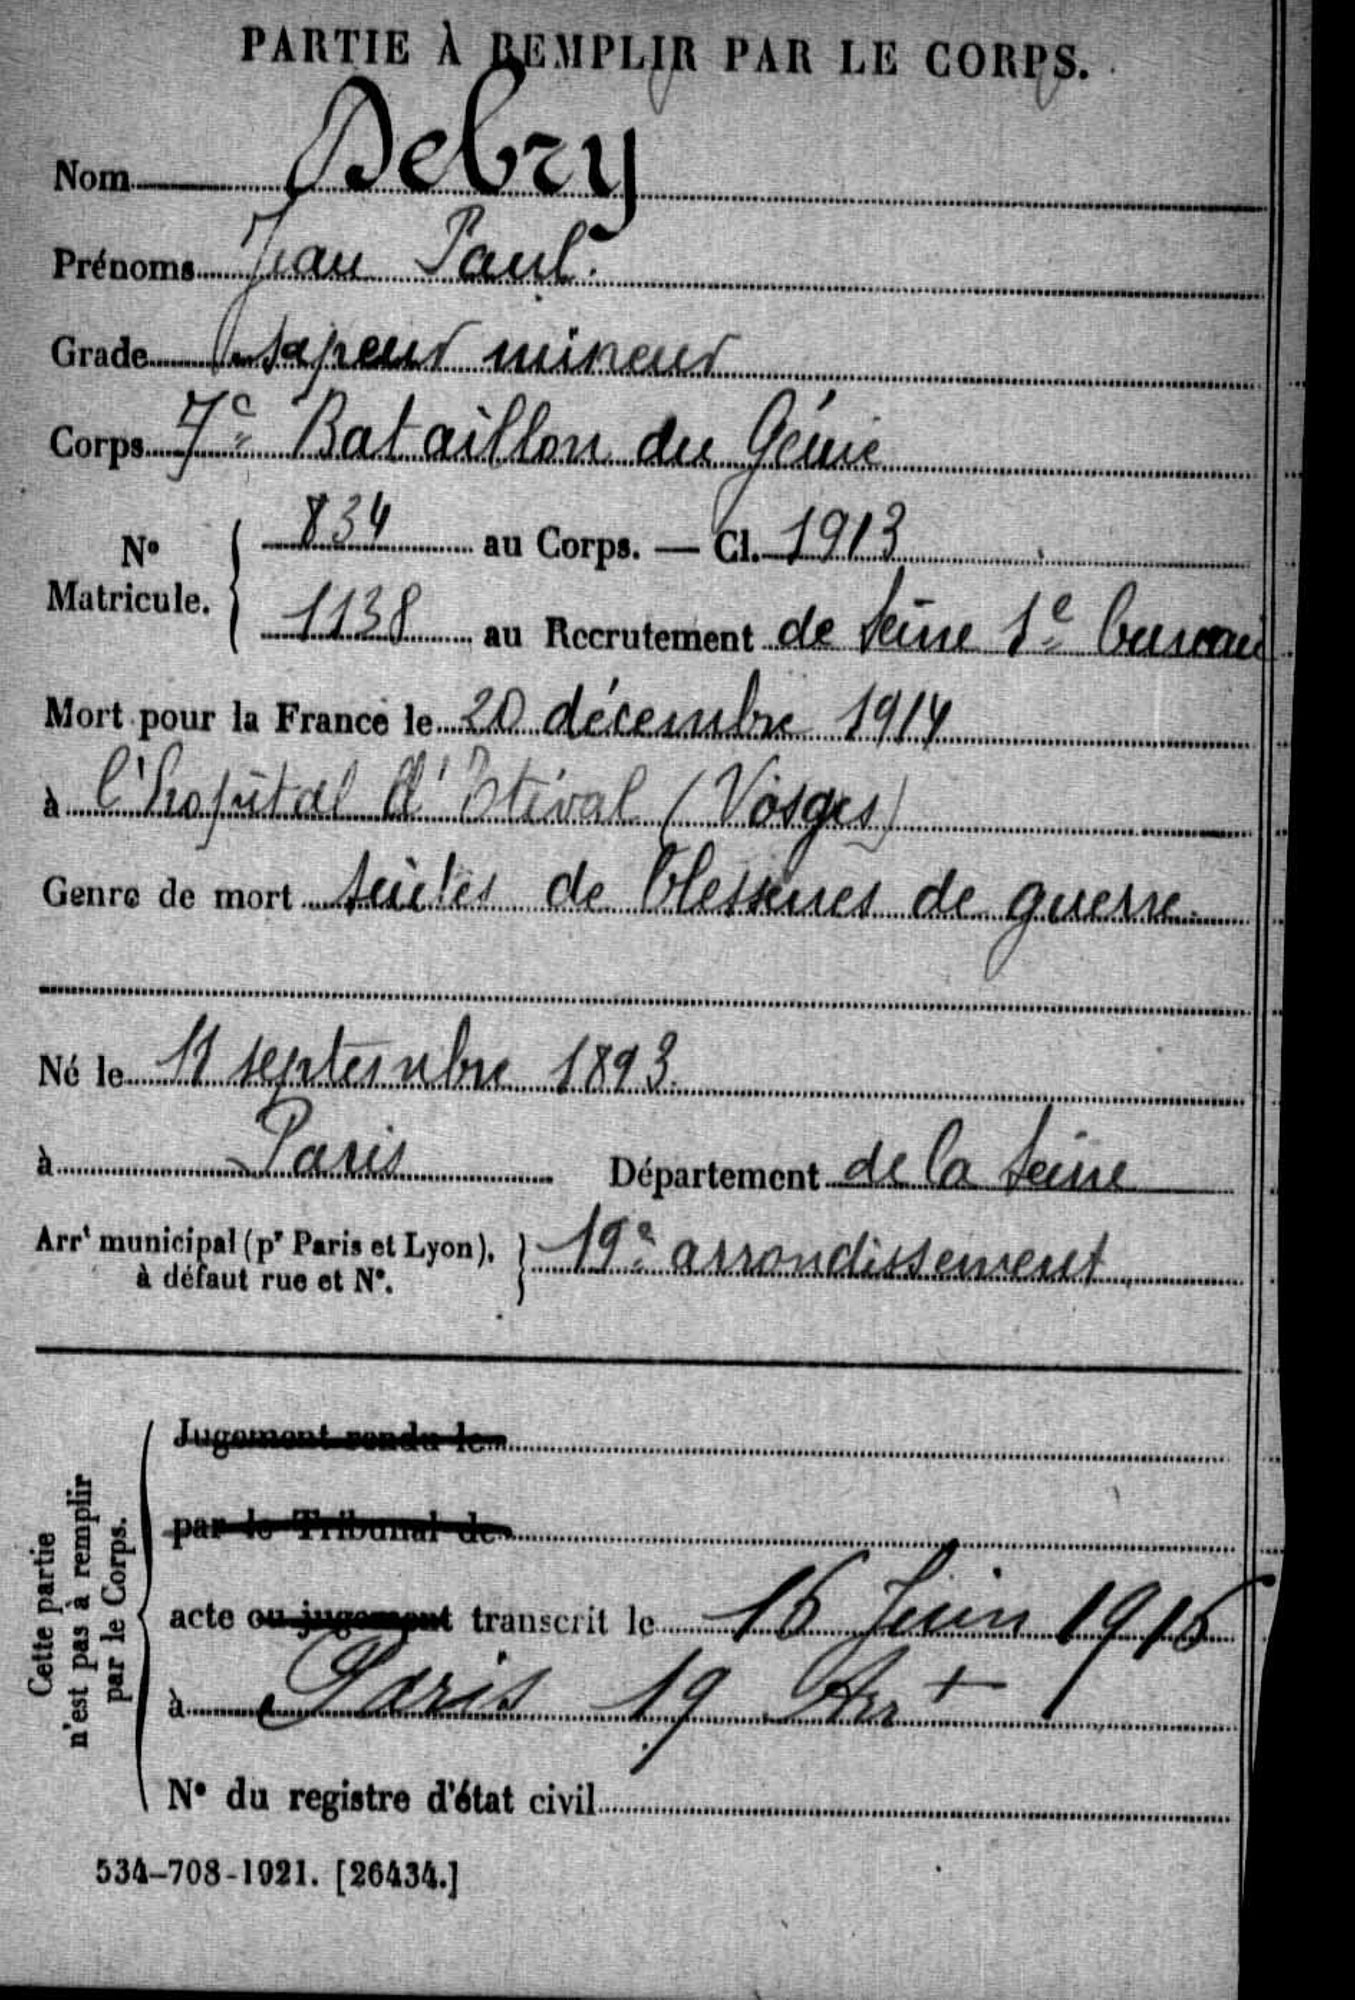 PARTIE À REMPLIR PAR LE CORPS.
Nom Debry
Prénoms Jean Paul.
Grade sapeur mineur
Corps 7e Bataillon du Génie
N° Matricule. { 834 au Corps. — Cl. 1913
1138 au Recrutement de Seine 1e bureau
Mort pour la France le 20 décembre 1914
à l'hopital d'Etival (Vosges)
Genre de mort suites de blessures de guerre.
Né le 11 septembre 1893.
à Paris Département de la Seine
Arrt municipal (pr Paris et Lyon), à défaut rue et N°. } 19e arrondissement
Cette partie n'est pas à remplir par le Corps.
Jugement rendu le
par le Tribunal de
acte ou jugement transcrit le 16 Juin 1916
à Paris 19 Arrt
N° du registre d'état civil
534-708-1921. [26434.]